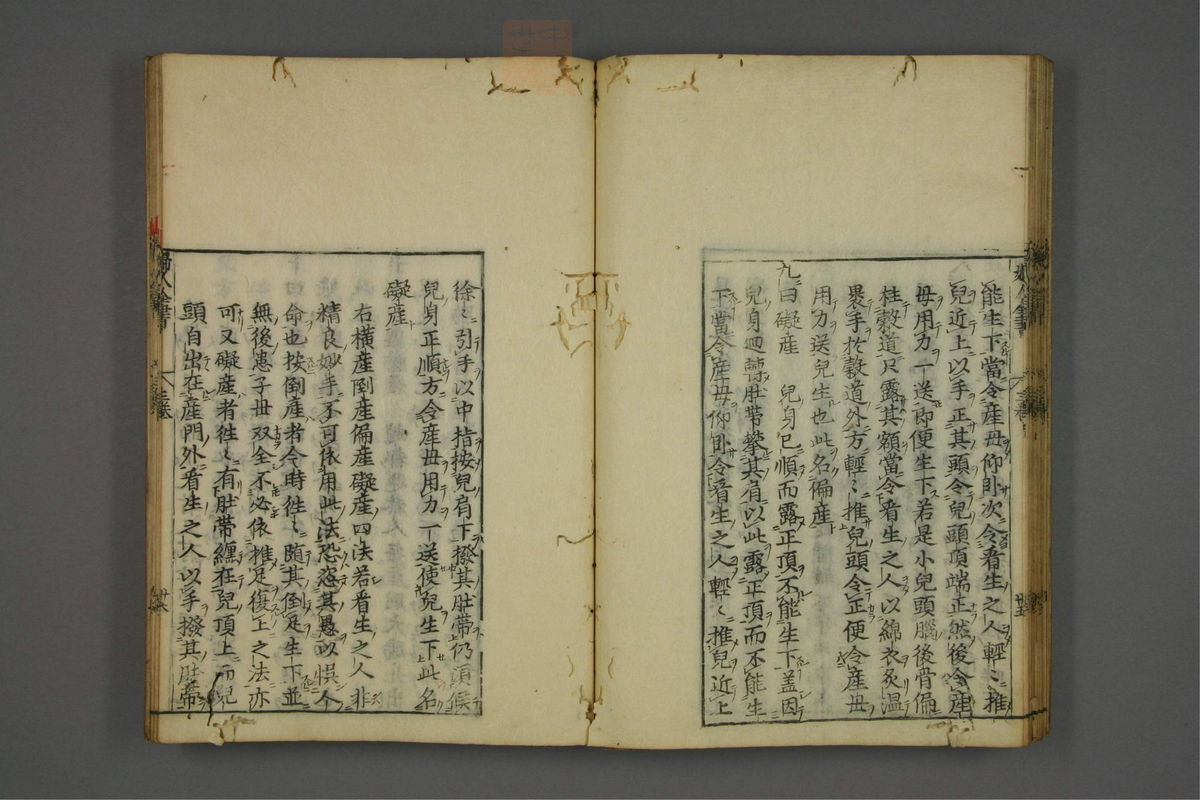 能生下當令産母仰臥次令看生之人輕〻推
兒近上以手正其頭令兒頭頂端正然後令産
母用力一送即便生下若是小兒頭腦後骨偏
柱穀道只露其額當令看生之人以綿衣炙温
裹手於穀道外方輕〻推兒頭令正便令産母
用力送兒生也此名偏産
九曰礙産 兒身已順而露正頂不能生下盖因
兒身廻轉肚帶攀其肩以此露正頂而不能生
下當令産母仰臥令看生之人輕〻推兒近上
徐〻引手以中指按兒肩下撥其肚帶仍須候
兒身正順方令産母用力一送使兒生下此名
礙産
右横産倒産偏産礙産四法若看生之人非
精良妙手不可依用此法恐恣其愚以悞人
命也按倒産者今時徃〻随其倒足生下並
無後患子母双全不必依推足復上之法亦
可又礙産者徃〻有肚帶纏在兒頂上而兒
頭自出在産門外看生之人以手撥其肚帶